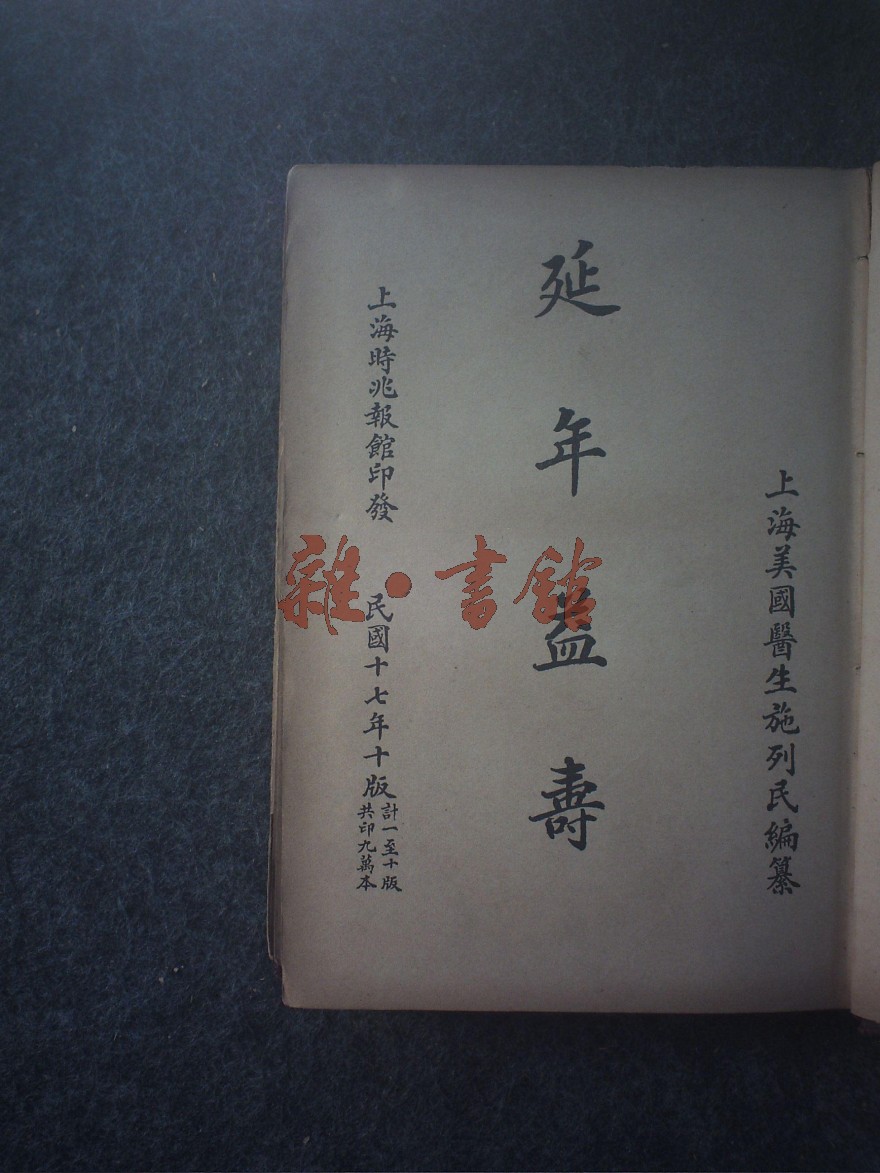 上海美國醫生施列民編纂
延年益壽
上海時兆報館印發 民國十七年十版
計一至十版
共印九萬本
雜·書館